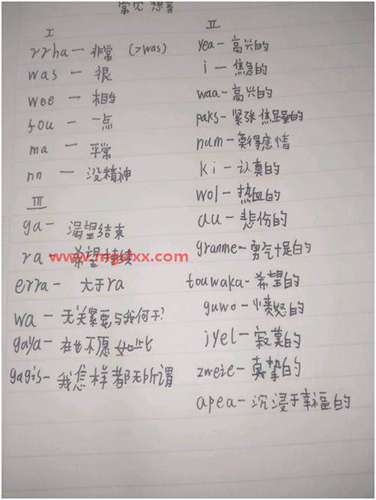 常见想音
I
rrha — 非常 (>was)
was — 很
wee — 相当
fou — 一点
ma — 平常
nn — 没精神
III
ga — 渴望结束
ra — 希望持续
erra — 大于ra
wa — 无关紧要与我何干?
gaya — 在也不愿如此
gagis — 我怎样都无所谓
II
yea — 高兴的
i — 焦急的
waa — 高兴的
paks — 紧张焦虑的
num — 莫得感情
ki — 认真的
wol — 热血的
au — 悲伤的
granme — 勇气十足的
touwaka — 希望的
guwo — 愤怒的
jyel — 寂寞的
zweie — 真挚的
apea — 沉浸于幸福的